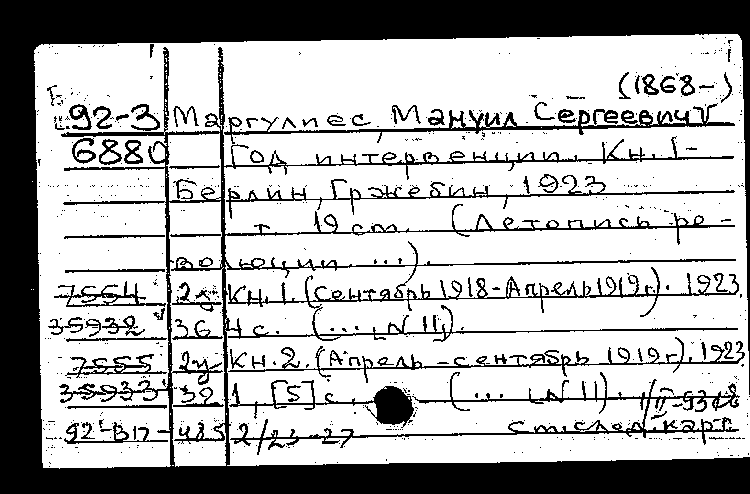 (1868-)
92-3 Маргулиес, Мануил Сергеевич
6880 Год интервенции. Кн. 1-
Берлин, Гржебин, 1923
т. 19 cm. (Летопись ре-
волюции ...).
7554 2у Кн. 1. (Сентябрь 1918-Апрель 1919г.). 1923.
35932 364 с. (... [N 11]).
7555 2у Кн. 2. (Апрель-сентябрь 1919г). 1923
35933 321, [5] с. (... [N 11]).
485 2/23-27 см.след.карт